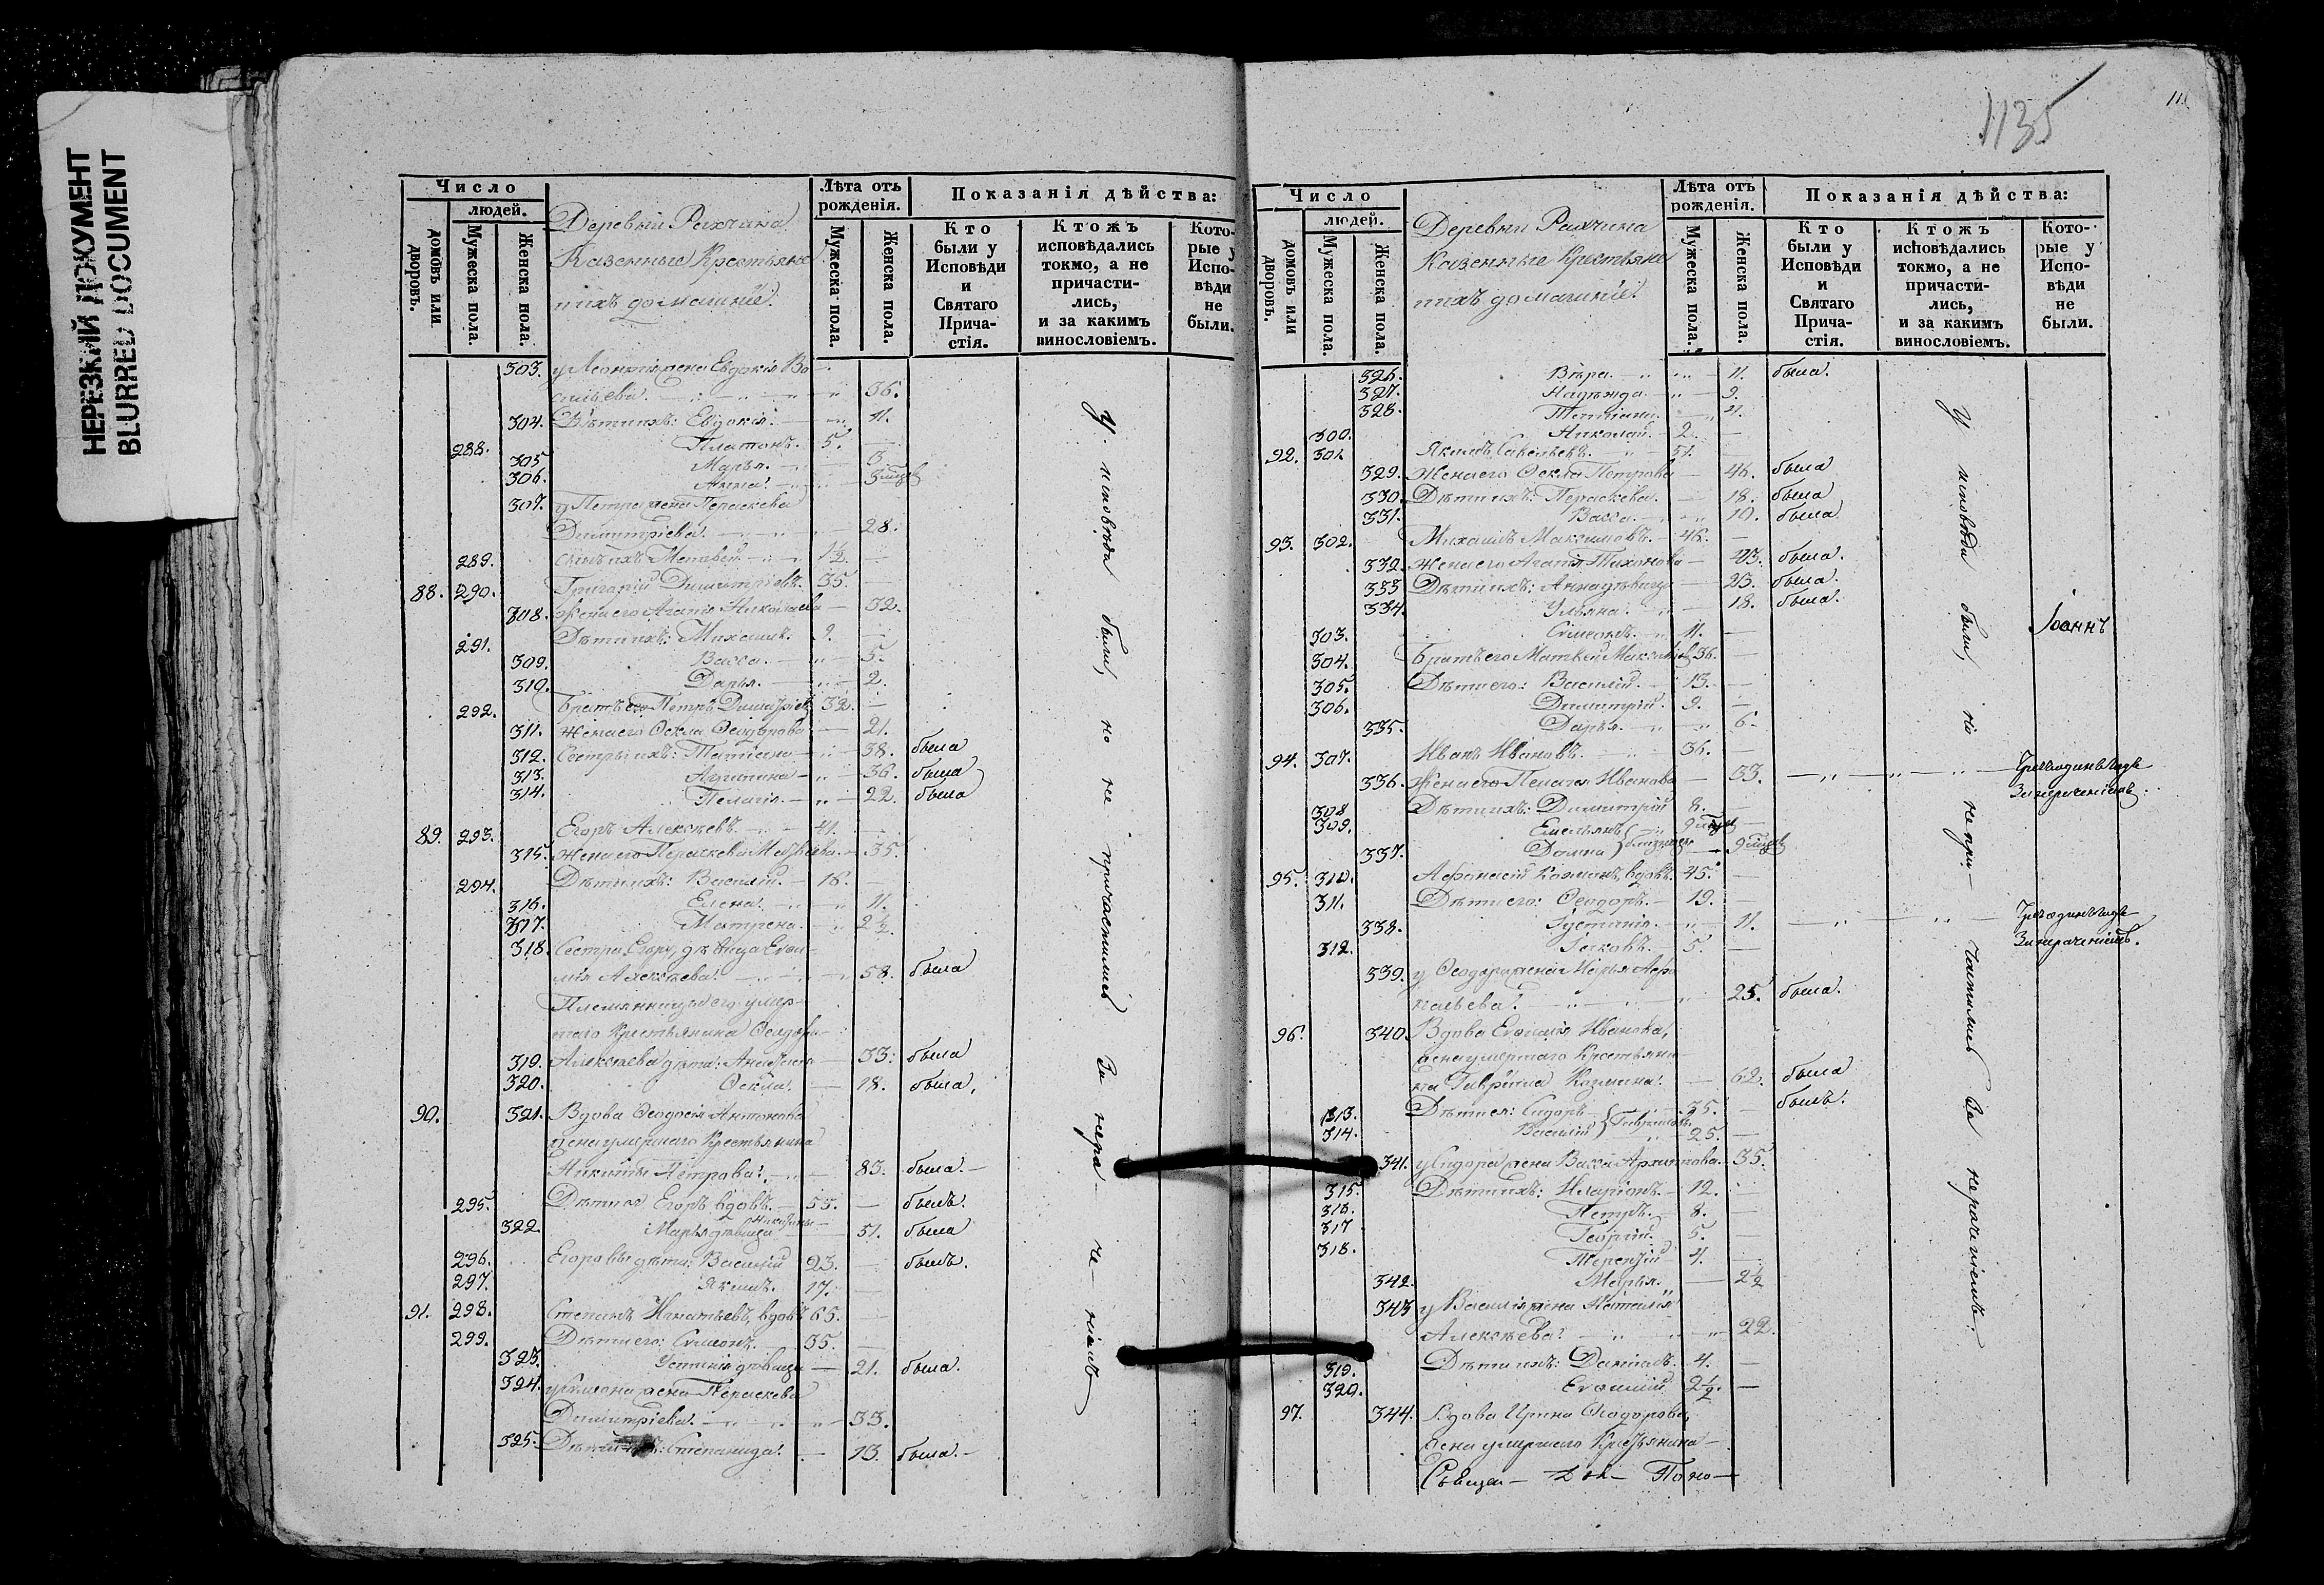 НЕРЕЗКИЙ ДОКУМЕНТ
BLURRED DOCUMENT
Число
людей.
домовъ или дворовъ.
Мужеска пола.
Женска пола.
Деревни
Казенные Крестьяне
ихъ домашніе.
Лѣта отъ рожденія.
Мужеска пола.
Женска пола.
Показанія дѣйства:
Кто были у Исповѣди и Святаго Прича-стія.
Ктожъ исповѣдались токмо, а не причасти-лись, и за какимъ винословіемъ.
Кото-рые у Испо-вѣди не были.
303. у жена Евдокія
36.
304. Дѣти ихъ: Евдокія. 11.
288. Платонъ. 5.
305 Марья. 3
306. Анна.
307. у Петра жена Параскева
Димитріева. 28.
289. сынъ ихъ 1½.
88. 290. Григорій Димитріевъ. 35.
308. жена его Агаѳія Николаева 32.
291. Дѣти ихъ: Михаилъ. 9.
309. Васса. 5.
310. Дарья. 2.
292. Братъ его Петръ 32.
311. Жена его Ѳекла Ѳеодорова 21.
312. Сестры ихъ: Татіана 38. была
313. 36. была
314. Пелагія. 22. была
89. 293. Егоръ Алексѣевъ. 41.
315. Жена его Параскева 35.
294. Дѣти ихъ: Василій. 16.
316. Елена. 11.
317. Матрена. 2½.
318. Сестра Егору, дѣвица
Алексѣева. 58. была
Племянницы его умер-
шаго Крестьянина Ѳеодора
319. Алексѣева дѣти: 33. была
320. Ѳекла. 18. была,
90. 321. Вдова Ѳеодосія Антонова
жена умершаго Крестьянина
Никиты Петрова. 83. была.
295. Дѣти ея Егоръ вдовъ. 55. былъ.
322. Марья дѣвица 51. была
296. Егоровы дѣти: Василій 23. былъ.
297. Якимъ. 17.
91. 298. Степанъ Игнатьевъ, вдовъ 65.
299. Дѣти его: Симеонъ. 35.
323. Устинія дѣвица 21. была.
324. у Симеона жена Параскева
Димитріева. 33.
325. Степанида. 13. была.
У исповѣди были, но не причастились За нера-че-ніемъ
1135
Число
людей.
домовъ или дворовъ.
Мужеска пола.
Женска пола.
Деревни
Казенные Крестьяне
ихъ домашніе.
Лѣта отъ рожденія.
Мужеска пола.
Женска пола.
Показанія дѣйства:
Кто были у Исповѣди и Святаго Прича-стія.
Ктожъ исповѣдались токмо, а не причасти-лись, и за какимъ винословіемъ.
Кото-рые у Испо-вѣди не были.
326. Вѣра. 11. была.
327. Надежда 9.
328. Татіана. 4.
300. Николай. 2.
92. 301. Якимъ Савельевъ. 51.
329. Жена его Ѳекла Петрова 46. была
330. Дѣти ихъ: Параскева. 18. была
331. Васса. 10. была
93. 302. Михаилъ Максимовъ. 46.
332. Жена его Агаѳія Тихонова 43. была.
333 Дѣти ихъ: Анна дѣвица 23. была.
334. Ульяна. 18. была.
303. Симеонъ. 11.
Іоаннъ
304. Братъ его Матвѣй 36.
305. Дѣти его: Василій. 13.
306. Димитрій. 9.
335. Дарья. 6.
94. 307. Иванъ Ивановъ. 36.
336. Жена его Пелагія Иванова 33.
За нераченіемъ.
308 Дѣти ихъ: Димитрій 8.
309. Емельянъ
337. Домна близнецы
95. 310. Афанасій Козминъ, вдовъ. 45.
311. Дѣти его: Ѳеодоръ. 19.
338. Іустинія. 11.
За нераченіемъ.
312. Іаковъ. 5.
339. у Ѳеодора жена Марья
25. была.
96. 340. Вдова Евѳимія Иванова,
жена умершаго Крестьяни-
на Гавріила Козмина. 62. была
313. Дѣти ея: Сидоръ 35. былъ.
314. Василій Гавриловы. 25.
341. у Сидора жена Васса Архипова. 35.
315. Дѣти ихъ: Иларіонъ. 12.
316. Петръ. 8.
317 Георгій. 5.
318. Терентій 4.
342. Марья. 2½
343 у Василія жена Наталія
Алексѣева. 22.
319. Дѣти ихъ: Даніилъ. 4.
320. Евѳимій 2½.
97. 344. Вдова Ирина Ѳеодорова,
жена умершаго Крестьянина
У исповѣди были, но не при-частились За нераченіемъ.